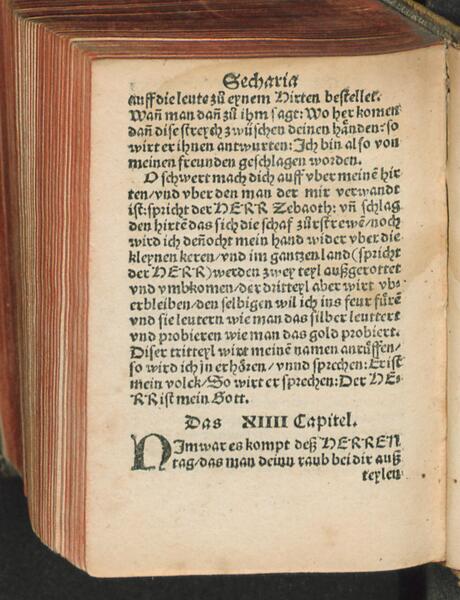 Secharia
auff die leute zů eynem Hirten bestellet.
Wañ man dañ zů ihm sagt: Wo her komen
dañ dise streych zwüschen deinen hånden: so
wirt er ihnen antwurten: Ich bin also von
meinen freunden geschlagen worden.
O schwert mach dich auff vber meinẽ hir
ten/vnd vber den man der mir verwandt
ist: spricht der HERR Zebaoth: vñ schlag
den hirtẽ das sich die schaf zůrstrewẽ/noch
wird ich deñocht mein hand wider vber die
kleynen keren/vnd im gantzen land (spricht
der HERR) werden zwey teyl außgerottet
vnd vmbkomen/der dritteyl aber wirt vb-
erbleiben/den selbigen wil ich ins feur fürẽ
vnd sie leutern wie man das silber leuttert
vnd probieren wie man das gold probiert.
Diser tritteyl wirt meinẽ namen anrůffen/
so wird ich jn erhören/vnnd sprechen: Er ist
mein volck/So wirt er sprechen: Der HE-
RR ist mein Gott.
Das XIIII Capitel.
NImwar es kompt deß HERREN
tag/das man deinn raub bei dir auß
teylen